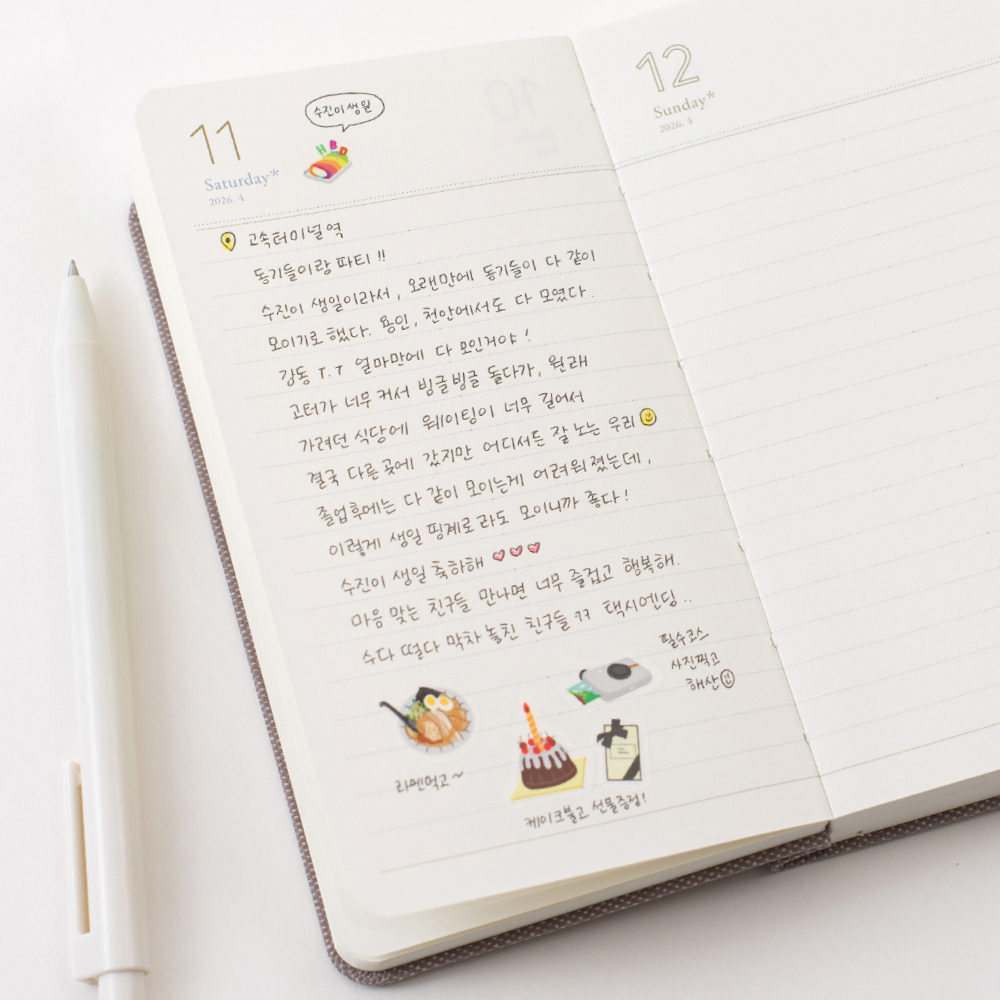 11
수진이 생일
HBD
Saturday*
2026. 4
고속터미널역
동기들이랑 파티 !!
수진이 생일이라서, 오랜만에 동기들이 다 같이
모이기로 했다. 용인, 천안에서도 다 모였다.
감동 T.T 얼마만에 다 모인거야!
고터가 너무 커서 빙글빙글 돌다가, 원래
가려던 식당에 웨이팅이 너무 길어서
결국 다른 곳에 갔지만 어디서든 잘 노는 우리
졸업후에는 다 같이 모이는게 어려워졌는데,
이렇게 생일 핑계로라도 모이니까 좋다!
수진이 생일 축하해 ♡♡♡
마음 맞는 친구들 만나면 너무 즐겁고 행복해.
수다 떨다 막차 놓친 친구들 ㅋㅋ 택시엔딩..
필수코스
사진찍고
해산
라멘먹고~
케이크불고 선물증정!
12
Sunday*
2026. 4